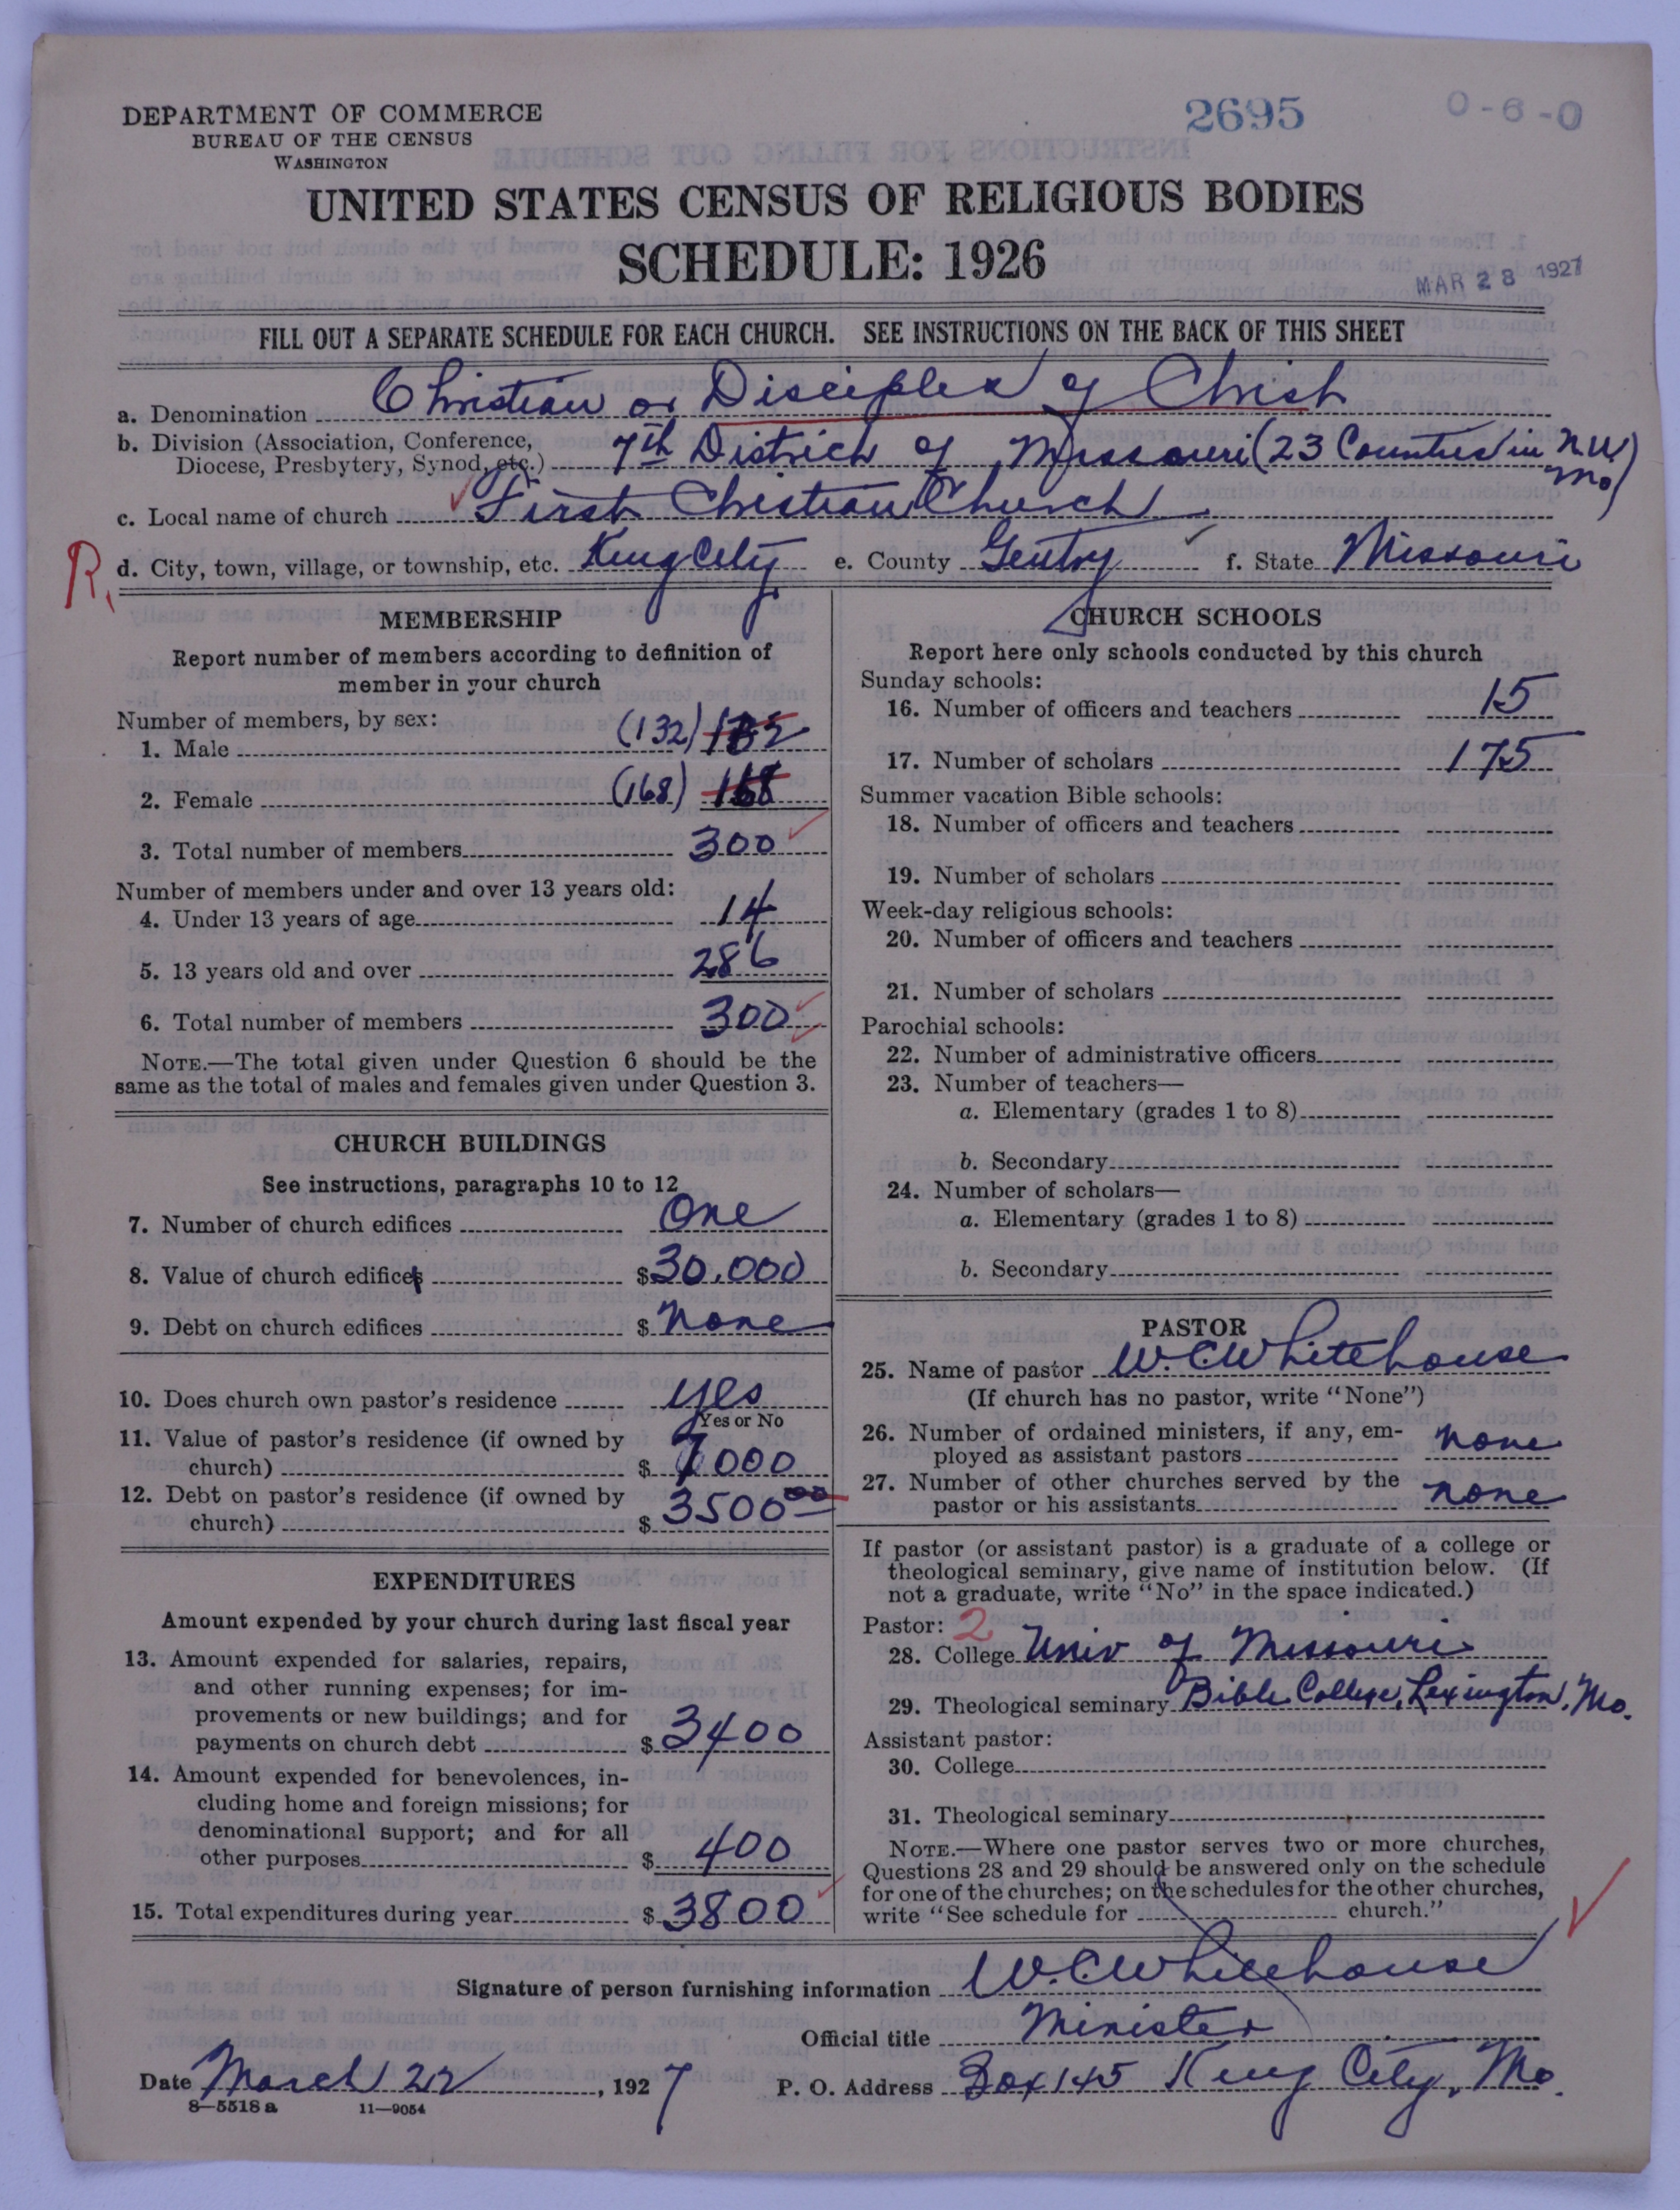 DEPARTMENT OF COMMERCE
BUREAU OF THE CENSUS
WASHINGTON
2695
0-6-0
UNITED STATES CENSUS OF RELIGIOUS BODIES
SCHEDULE: 1926
MAR 28 1927
FILL OUT A SEPARATE SCHEDULE FOR EACH CHURCH. SEE INSTRUCTIONS ON THE BACK OF THIS SHEET
a. Denomination Christian or Disciples of Christ
b. Division (Association, Conference, Diocese, Presbytery, Synod, etc.) 7th District of Missouri (23 Counties in N.W. Mo)
c. Local name of church First Christian Church
R.
d. City, town, village, or township, etc. King City e. County Gentry f. State Missouri
MEMBERSHIP
Report number of members according to definition of
member in your church
Number of members, by sex:
1. Male (132)
2. Female (168) 168
3. Total number of members 300
Number of members under and over 13 years old:
4. Under 13 years of age 14
5. 13 years old and over 286
6. Total number of members 300
NOTE.—The total given under Question 6 should be the
same as the total of males and females given under Question 3.
CHURCH BUILDINGS
See instructions, paragraphs 10 to 12
7. Number of church edifices One
8. Value of church edifices $30,000
9. Debt on church edifices $ None
10. Does church own pastor's residence yes
Yes or No
11. Value of pastor's residence (if owned by
church) $ 7000
12. Debt on pastor's residence (if owned by
church) $ 3500 00
EXPENDITURES
Amount expended by your church during last fiscal year
13. Amount expended for salaries, repairs,
and other running expenses; for im-
provements or new buildings; and for
payments on church debt $ 3400
14. Amount expended for benevolences, in-
cluding home and foreign missions; for
denominational support; and for all
other purposes $ 400
15. Total expenditures during year $ 3800
CHURCH SCHOOLS
Report here only schools conducted by this church
Sunday schools:
16. Number of officers and teachers 15
17. Number of scholars 175
Summer vacation Bible schools:
18. Number of officers and teachers
19. Number of scholars
Week-day religious schools:
20. Number of officers and teachers
21. Number of scholars
Parochial schools:
22. Number of administrative officers
23. Number of teachers—
a. Elementary (grades 1 to 8)
b. Secondary
24. Number of scholars—
a. Elementary (grades 1 to 8)
b. Secondary
PASTOR
25. Name of pastor W.C. Whitehouse
(If church has no pastor, write "None")
26. Number of ordained ministers, if any, em-
ployed as assistant pastors none
27. Number of other churches served by the
pastor or his assistants none
If pastor (or assistant pastor) is a graduate of a college or
theological seminary, give name of institution below. (If
not a graduate, write "No" in the space indicated.)
Pastor: 2
28. College Univ of Missouri
29. Theological seminary Bible College, Lexington, Mo.
Assistant pastor:
30. College
31. Theological seminary
NOTE.—Where one pastor serves two or more churches,
Questions 28 and 29 should be answered only on the schedule
for one of the churches; on the schedules for the other churches,
write "See schedule for church."
Signature of person furnishing information W.C. Whitehouse
Official title Minister
Date March 22, 1927 P. O. Address Box 145 King City, Mo.
8—5518 a 11—9054